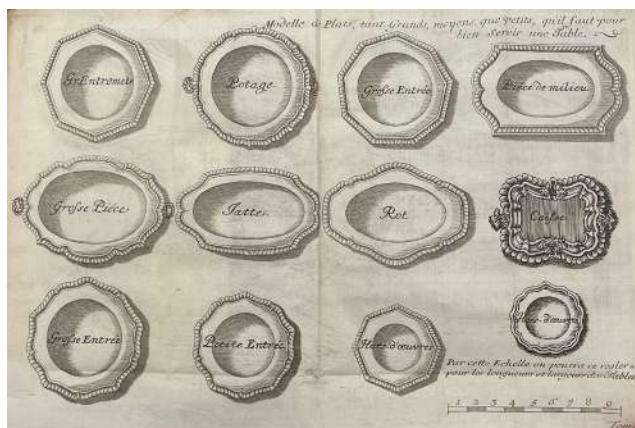 Modelle de Plats, tant Grands, moyens que petits, qu'il faut pour
bien Servir une Table.
Gr. Entromets
Potage.
Grosse Entrée
Piéce de milieu
Grosse Piéce
Jattes
Rot
Grosse Entrée
Petite Entrée
Hors-d'œuvres
Hors-d'œuvres
Par cette Echelle on poura ce regler
pour les longueurs et largeurs des Tables
1 2 3 4 5 6 7 8 9
Tome